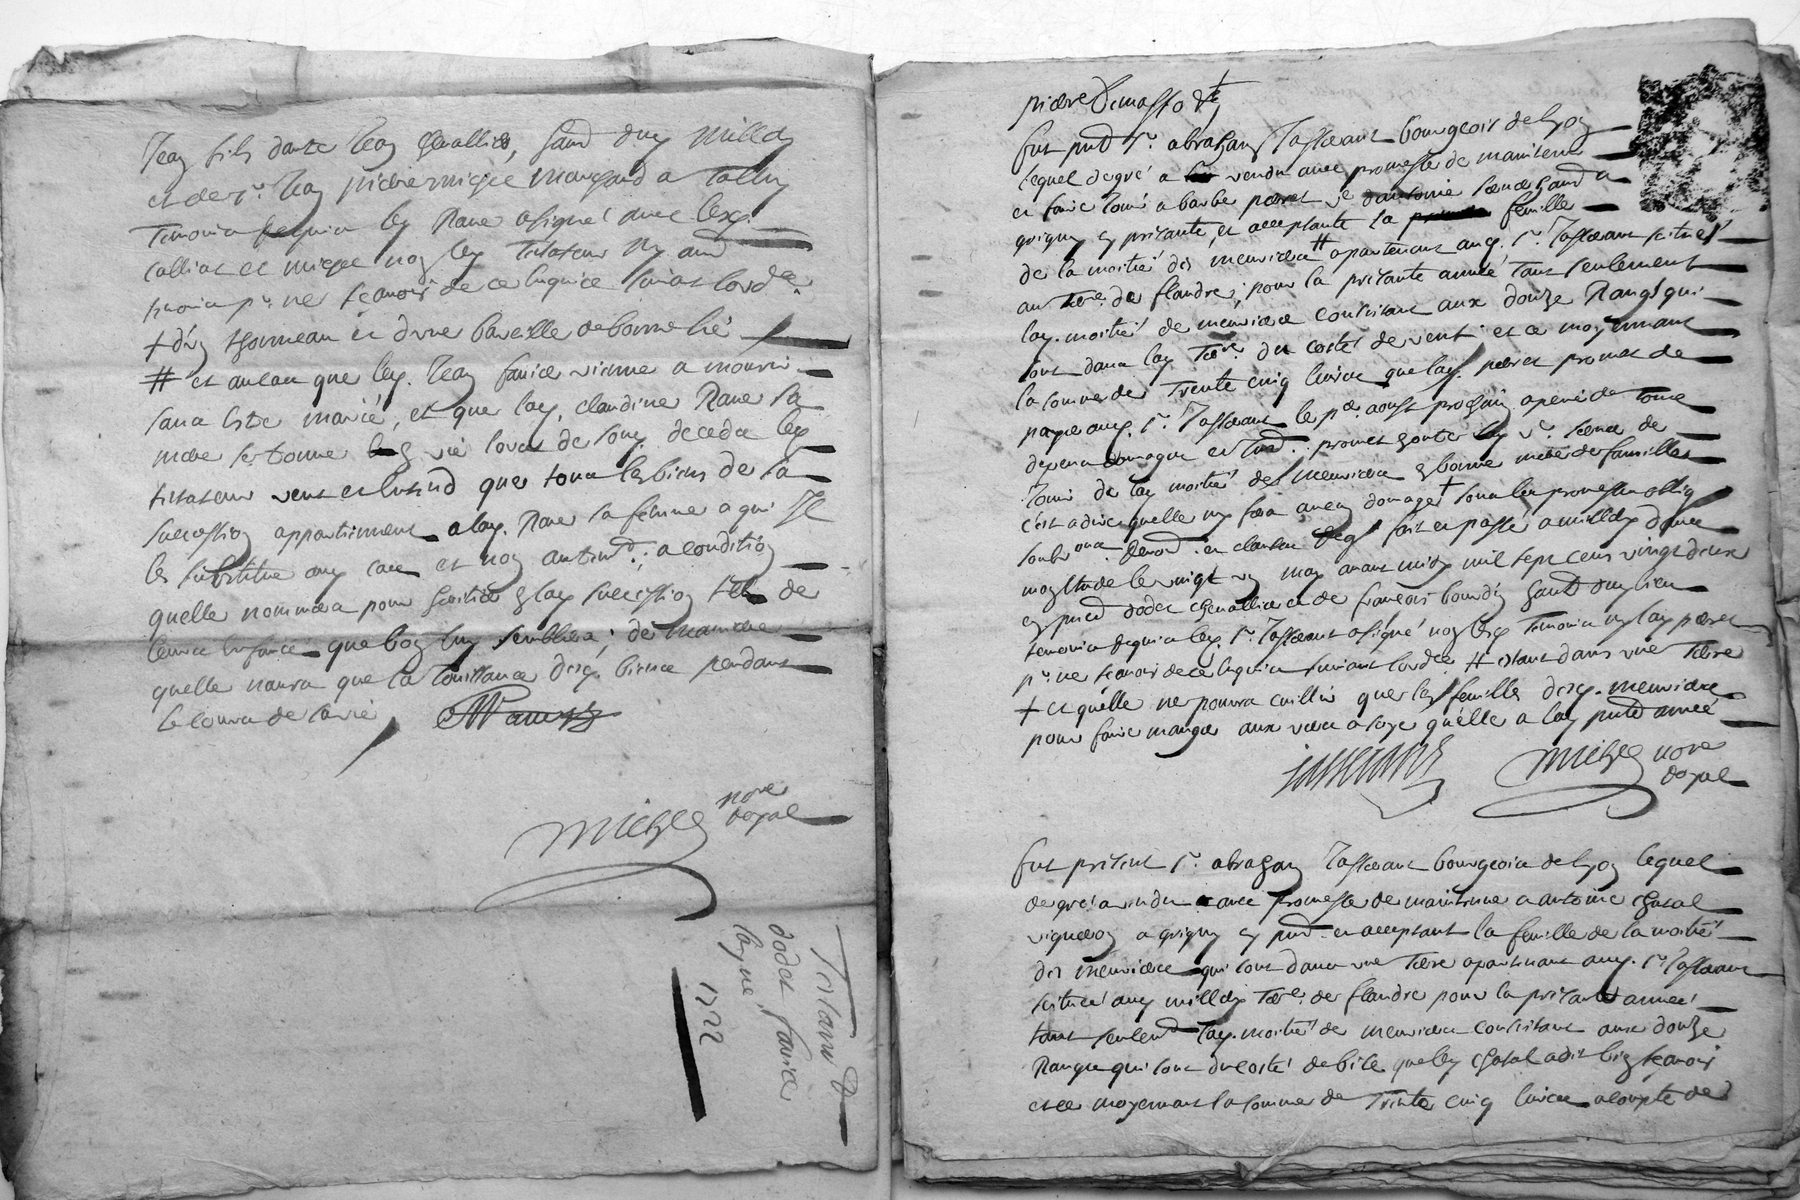 Jean fils dautre Jean chevallier, hand dud millery
et de sr. Jean pierre marchand a
tesmoins lad Rave a signé avec lesd.
et non led testateur ny
pr. ne scavoir de ce enquis suivant lord.ce
+ d'un thonneau et d'une baraille de bonne lié
# et au cas que led. Jean favier vienne a mourir
sans estre marié, et que lad. claudine Rave sa
mere se trouve en vie lors de son deceds led
testateur veut et entend que tous les biens de sa
succession appartiennent a lad. Rave sa femme a qui Il
les substitue aud cas et non autremt. a condition
quelle nommera pour heritier en lad succession tel de
leurs enfans que bon luy semblera, de maniere
quelle naura que la Jouissance desd. biens pendant
le cours de sa vie
michel nore
royal
Testamt de
dodet favier
layné
1722
fut prnt sr. abraham Tasserant bourgeois de lyon
lequel de gré a vendu avec promesse de maintenir
et faire Jouir a barbe
grigny en presante, et acceptante la feuille
de la moitié des meuriers # apartenant aud. sr. Tasserant scitués
au Terre. de flandre, pour la presante année tant seulement
lad. moitié de meuriers consistant aux douze Rangs qui
sont dans lad Terre. du costé de vent et ce moyennant
la somme de Trente cinq livres que lad. promet de
payer aud. sr. Tasserant le pr. aoust prochain a peine de tous
depens domages et
Jouir de lad moitié des meuriers en bonne mere de famille
c'est a dire quelle ny fera aucun domage + sous les promesses oblig
fait et passé a millery dans
mon estude le vingt un may avant midy mil sept cens vingt deux
en prnce dodet chevallier et de françois bourdin hand dud lieu
temoins requis led. sr. Tasserant a signé non lesd temoins ny lad
pr. ne scavoir de ce enquis suivant lord.ce # estant dans une Terre
+ et quelle ne pourra cuillir que les feuilles desd. meuriers
pour faire manger aux vers a soye quelle a lad prnte année
tasserant michel nore
royal
fut present sr. abraham Tasserant bourgeois de lyon lequel
de gré a vendu avec promesse de maintenir a antoine chatal
vigneron a grigny en prnt. et acceptant la feuille de la moitié
des meuriers qui sont dans une Terre apartenant aud. sr. Tasserant
scitué aud millery Terre. de flandre pour la presante année
tant seulemt lad. moitié de meuriers consistant aux douze
Rangs qui sont du costé de bise que led chatal a dit bien scavoir
et ce moyennant la somme de Trente cinq livres a compte de